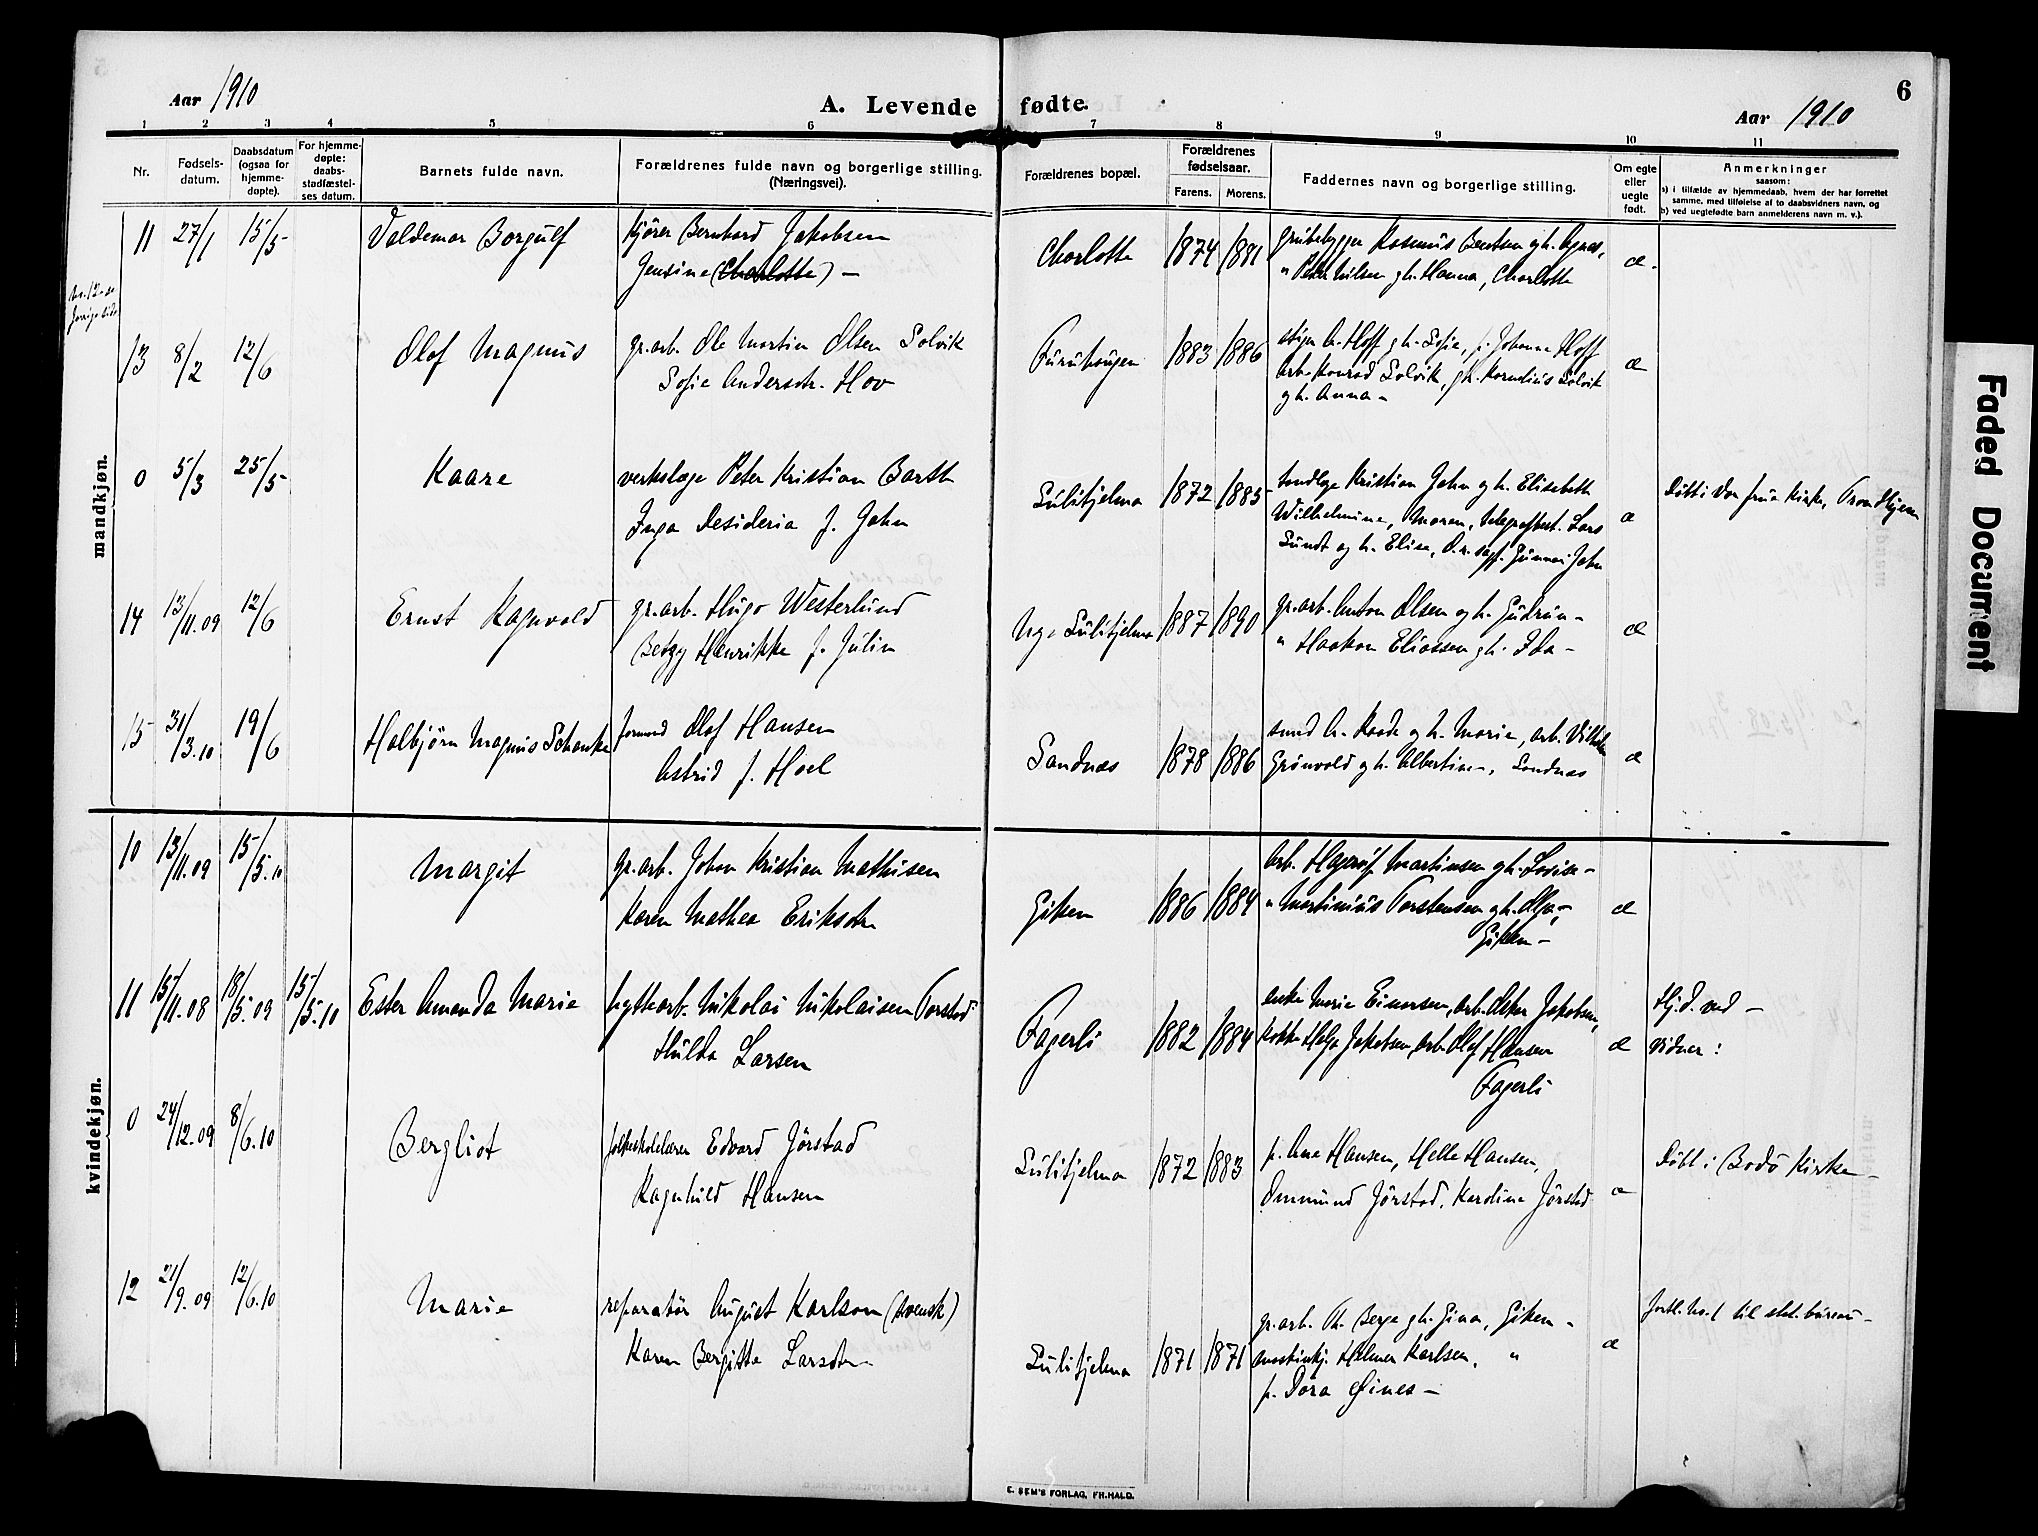 Aar 1910
A. Levende fødte.
Aar 1910
6
1 2 3 4 5 6 7 8 9 10 11
Nr.
Fødsels-
datum.
Daabsdatum
(ogsaa for
hjemme-
døpte).
For hjemme-
døpte:
daabs-
stadfæstel-
ses datum.
Barnets fulde navn.
Forældrenes fulde navn og borgerlige stilling.
(Næringsvei).
Forældrenes bopæl.
Forældrenes
fødselsaar.
Farens. Morens.
Faddernes navn og borgerlige stilling.
Om egte
eller
uegte
født.
Anmerkninger
saasom:
a) i tilfælde av hjemmedaab, hvem der har forrettet
samme, med tilføielse af to daabsvidners navn, og
b) ved uegtefødte barn anmelderens navn m. v.).
mandkjøn.
11 27/1 15/5 Valdemar Borgulf
kjører Bernhard Jakobsen
Jensine (Charlotte) —
Charlotte 1874 1881
grubebygger Rasmus Bentsen og h. Agnes,
" Peter Nilsen og h. Hanna, Charlotte
æ.
13 8/2 12/6 Olof Magnus
gr.arb. Ole Martin Olsen Solvik
Sofie Andersdtr. Hov
Furuhaugen 1883 1886
stiger A. Hoff og h. Sofie, f. Johanna Hoff
arb. Konrad Solvik, gh. Kornelius Solvik
og h. Anna -
æ
0 5/3 25/5 Kaare
verkslæge Peter Kristian Barth
Inga Desideria f. Jahn
Sulitjelma 1872 1885
tandlæge Kristian Jahn og h. Elisabeth
Wilhelmine, Moren, telegrafbest. Lars
Sundt og h. Elise, O.r.sagf. Gunnar Jahn
æ
Døbt i Vor frue Kirke, Trondhjem
14 13/11.09 12/6 Ernst Ragnvald
gr.arb. Hugo Westerlund
Betzy Henrikke f. Julin
Ny-Sulitjelma 1887 1890
gr.arb. Anton Olsen og h. Gudrun -
" Haakon Eliassen gh. Ida -
æ
15 31/3.10 19/6 Halbjørn Magnus Schanke
formand Olof Hansen
Astrid f. Hoel
Sandnæs 1878 1886
smed A. Raade og h. Marie, arb. Vilhelm
Grønvold og h. Albertine, Sandnæs
æ
kvindekjøn.
10 13/11.09 15/5.10 Margit
gr.arb. Johan Kristian Mathisen
Karen Mathea Eriksdtr
Giken 1886 1884
arb. Martinsen gh. Lovise -
" Martinius Torstensen gh. Olga,
Giken -
æ
11 15/11.08 18/5.09 15/5.10 Ester Amanda Marie
hyttearb. Nikolai Nikolaisen Torstad
Hulda Larsen
Fagerli 1882 1884
enke Marie Einarsen, arb. Oskar Jakobsen,
kokke Helga Jakobsen, arb. Olof Hansen
Fagerli
æ
Hj.d. ved —
Vidner:
0 24/12.09 8/6.10 Bergliot
folkeskolelærer Edvard Jörstad
Ragnhild Hansen
Sulitjelma 1872 1883
p. Ane Hansen, Helle Hansen,
Ommund Jörstad, Karoline Jörstad
æ
Döbt i Bodö Kirke -
12 21/9.09 12/6.10 Marie
reparatør August Karlson (svensk)
Karen Bergitte Larsdtr
Sulitjelma 1871 1871
gr.arb. Th. Berge gh. Gina, Giken -
maskinkj. Helmer Karlsen, "
p. Dora Sines -
æ
fortl. No. 1 til stat. bureau -
E. SEM'S FORLAG, FR.HALD.
Faded Document